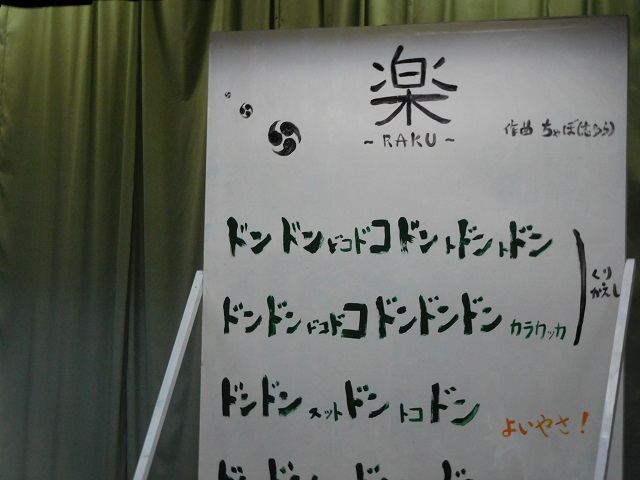 楽
~RAKU~
作曲 ちゃぼ
ドンドンドコドコドントドントドン
ドンドンドコドコドンドンドン カラカッカ
くり
かえし
ドンドンスットドントコドン
よいやさ!